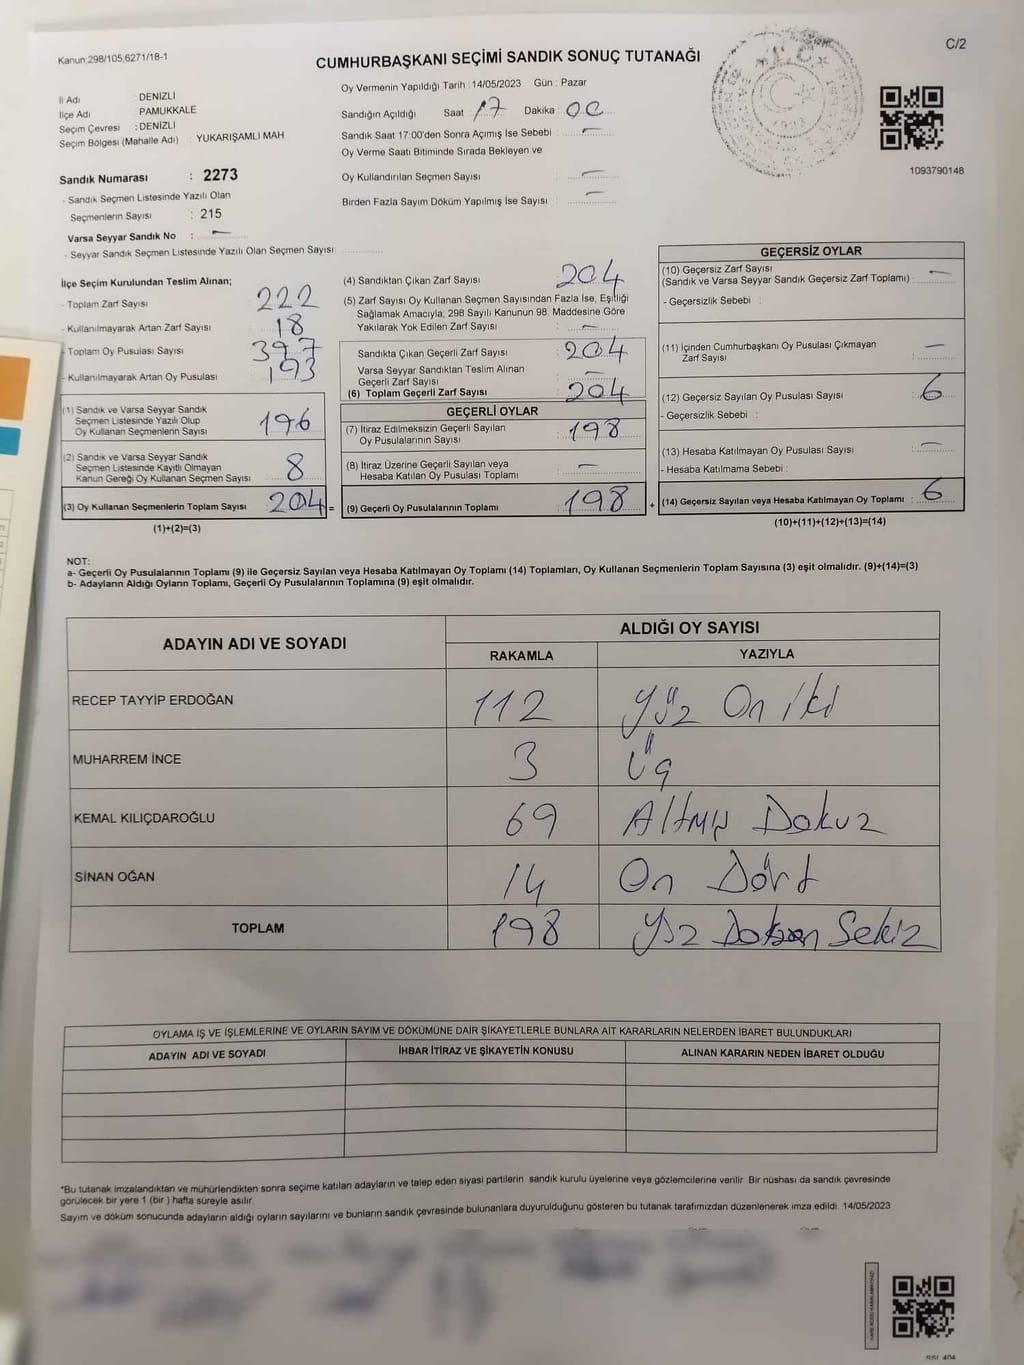 Kanun:298/105,6271/18-1
CUMHURBAŞKANI SEÇİMİ SANDIK SONUÇ TUTANAĞI
C/2
Oy Vermenin Yapıldığı Tarih : 14/05/2023 Gün : Pazar
İl Adı : DENİZLİ
İlçe Adı : PAMUKKALE
Seçim Çevresi : DENİZLİ
Seçim Bölgesi (Mahalle Adı) : YUKARIŞAMLI MAH
Sandık Numarası : 2273
- Sandık Seçmen Listesinde Yazılı Olan
Seçmenlerin Sayısı : 215
Varsa Seyyar Sandık No : —
- Seyyar Sandık Seçmen Listesinde Yazılı Olan Seçmen Sayısı:
Sandığın Açıldığı Saat 17 Dakika : 00
Sandık Saat 17:00'den Sonra Açımış İse Sebebi : —
Oy Verme Saati Bitiminde Sırada Bekleyen ve
Oy Kullandırılan Seçmen Sayısı : —
Birden Fazla Sayım Döküm Yapılmış İse Sayısı : —
1093790148
İlçe Seçim Kurulundan Teslim Alınan;
- Toplam Zarf Sayısı : 222
- Kullanılmayarak Artan Zarf Sayısı : 18
- Toplam Oy Pusulası Sayısı : 397
- Kullanılmayarak Artan Oy Pusulası : 193
(1) Sandık ve Varsa Seyyar Sandık
Seçmen Listesinde Yazılı Olup
Oy Kullanan Seçmenlerin Sayısı : 196
(2) Sandık ve Varsa Seyyar Sandık
Seçmen Listesinde Kayıtlı Olmayan
Kanun Gereği Oy Kullanan Seçmen Sayısı : 8
(3) Oy Kullanan Seçmenlerin Toplam Sayısı : 204 =
(1)+(2)=(3)
(4) Sandıktan Çıkan Zarf Sayısı : 204
(5) Zarf Sayısı Oy Kullanan Seçmen Sayısından Fazla İse, Eşitliği
Sağlamak Amacıyla; 298 Sayılı Kanunun 98. Maddesine Göre
Yakılarak Yok Edilen Zarf Sayısı : —
Sandıkta Çıkan Geçerli Zarf Sayısı : 204
Varsa Seyyar Sandıktan Teslim Alınan
Geçerli Zarf Sayısı : —
(6) Toplam Geçerli Zarf Sayısı : 204
GEÇERLİ OYLAR
(7) İtiraz Edilmeksizin Geçerli Sayılan
Oy Pusulalarının Sayısı : 198
(8) İtiraz Üzerine Geçerli Sayılan veya
Hesaba Katılan Oy Pusulası Toplamı : —
(9) Geçerli Oy Pusulalarının Toplamı : 198 +
GEÇERSİZ OYLAR
(10) Geçersiz Zarf Sayısı
(Sandık ve Varsa Seyyar Sandık Geçersiz Zarf Toplamı) : —
- Geçersizlik Sebebi :
(11) İçinden Cumhurbaşkanı Oy Pusulası Çıkmayan
Zarf Sayısı : —
(12) Geçersiz Sayılan Oy Pusulası Sayısı : 6
- Geçersizlik Sebebi :
(13) Hesaba Katılmayan Oy Pusulası Sayısı : —
- Hesaba Katılmama Sebebi :
(14) Geçersiz Sayılan veya Hesaba Katılmayan Oy Toplamı : 6
(10)+(11)+(12)+(13)=(14)
NOT:
a- Geçerli Oy Pusulalarının Toplamı (9) ile Geçersiz Sayılan veya Hesaba Katılmayan Oy Toplamı (14) Toplamları, Oy Kullanan Seçmenlerin Toplam Sayısına (3) eşit olmalıdır. (9)+(14)=(3)
b- Adayların Aldığı Oyların Toplamı, Geçerli Oy Pusulalarının Toplamına (9) eşit olmalıdır.
ADAYIN ADI VE SOYADI
ALDIĞI OY SAYISI
RAKAMLA YAZIYLA
RECEP TAYYİP ERDOĞAN 112 Yüz On İki
MUHARREM İNCE 3 Üç
KEMAL KILIÇDAROĞLU 69 Altmış Dokuz
SİNAN OĞAN 14 On Dört
TOPLAM 198 Yüz Doksan Sekiz
OYLAMA İŞ VE İŞLEMLERİNE VE OYLARIN SAYIM VE DÖKÜMÜNE DAİR ŞİKAYETLERLE BUNLARA AİT KARARLARIN NELERDEN İBARET BULUNDUKLARI
ADAYIN ADI VE SOYADI İHBAR İTİRAZ VE ŞİKAYETİN KONUSU ALINAN KARARIN NEDEN İBARET OLDUĞU
*Bu tutanak imzalandıktan ve mühürlendikten sonra seçime katılan adayların ve talep eden siyasi partilerin sandık kurulu üyelerine veya gözlemcilerine verilir. Bir nüshası da sandık çevresinde
görülecek bir yere 1 (bir ) hafta süreyle asılır.
Sayım ve döküm sonucunda adayların aldığı oyların sayılarını ve bunların sandık çevresinde bulunanlara duyurulduğunu gösteren bu tutanak tarafımızdan düzenlenerek imza edildi. 14/05/2023